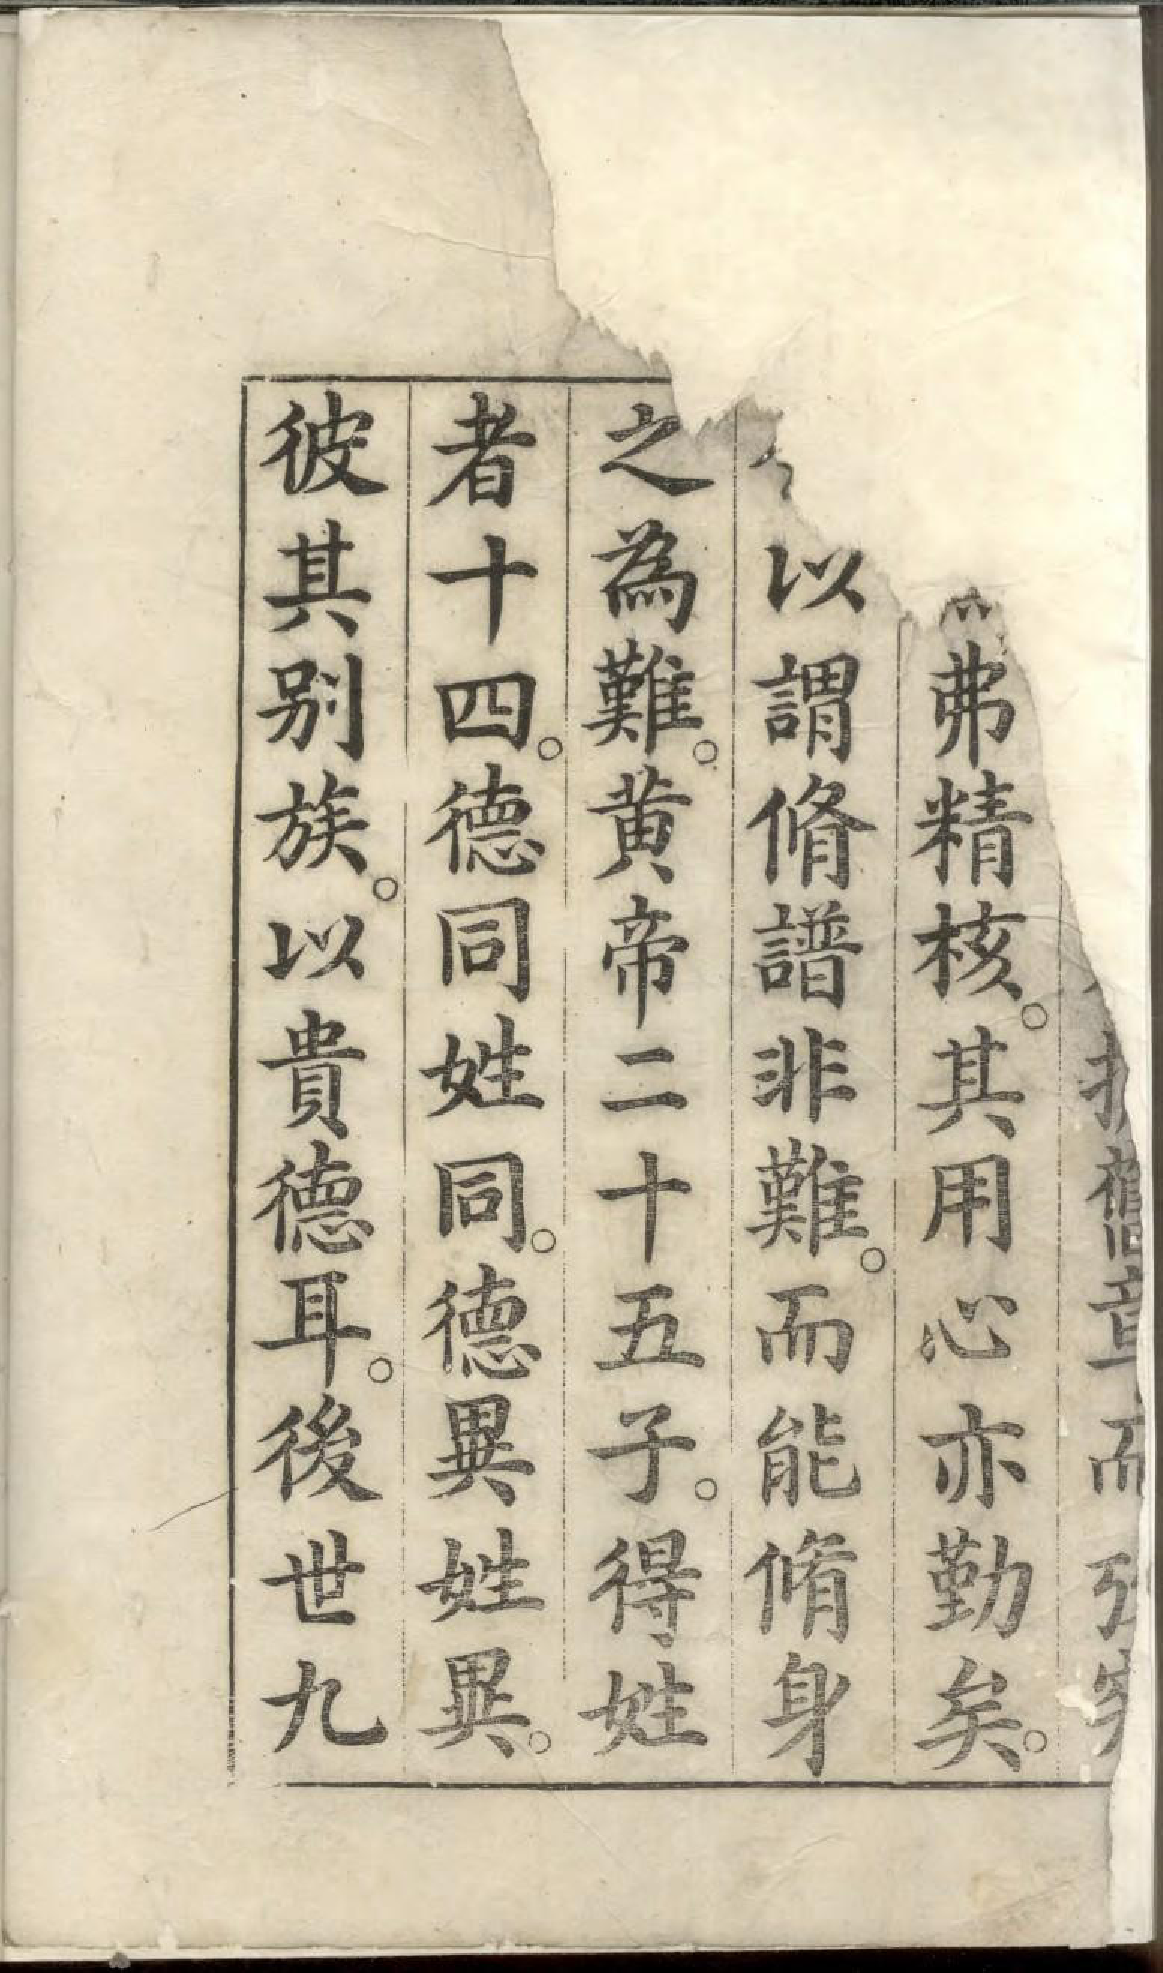 舊章而
弗精核。其用心亦勤矣。
以謂脩譜非難。而能脩身
之為難。黄帝二十五子。得姓
者十四。德同姓同。德異姓異。
彼其别族。以貴德耳。後世九